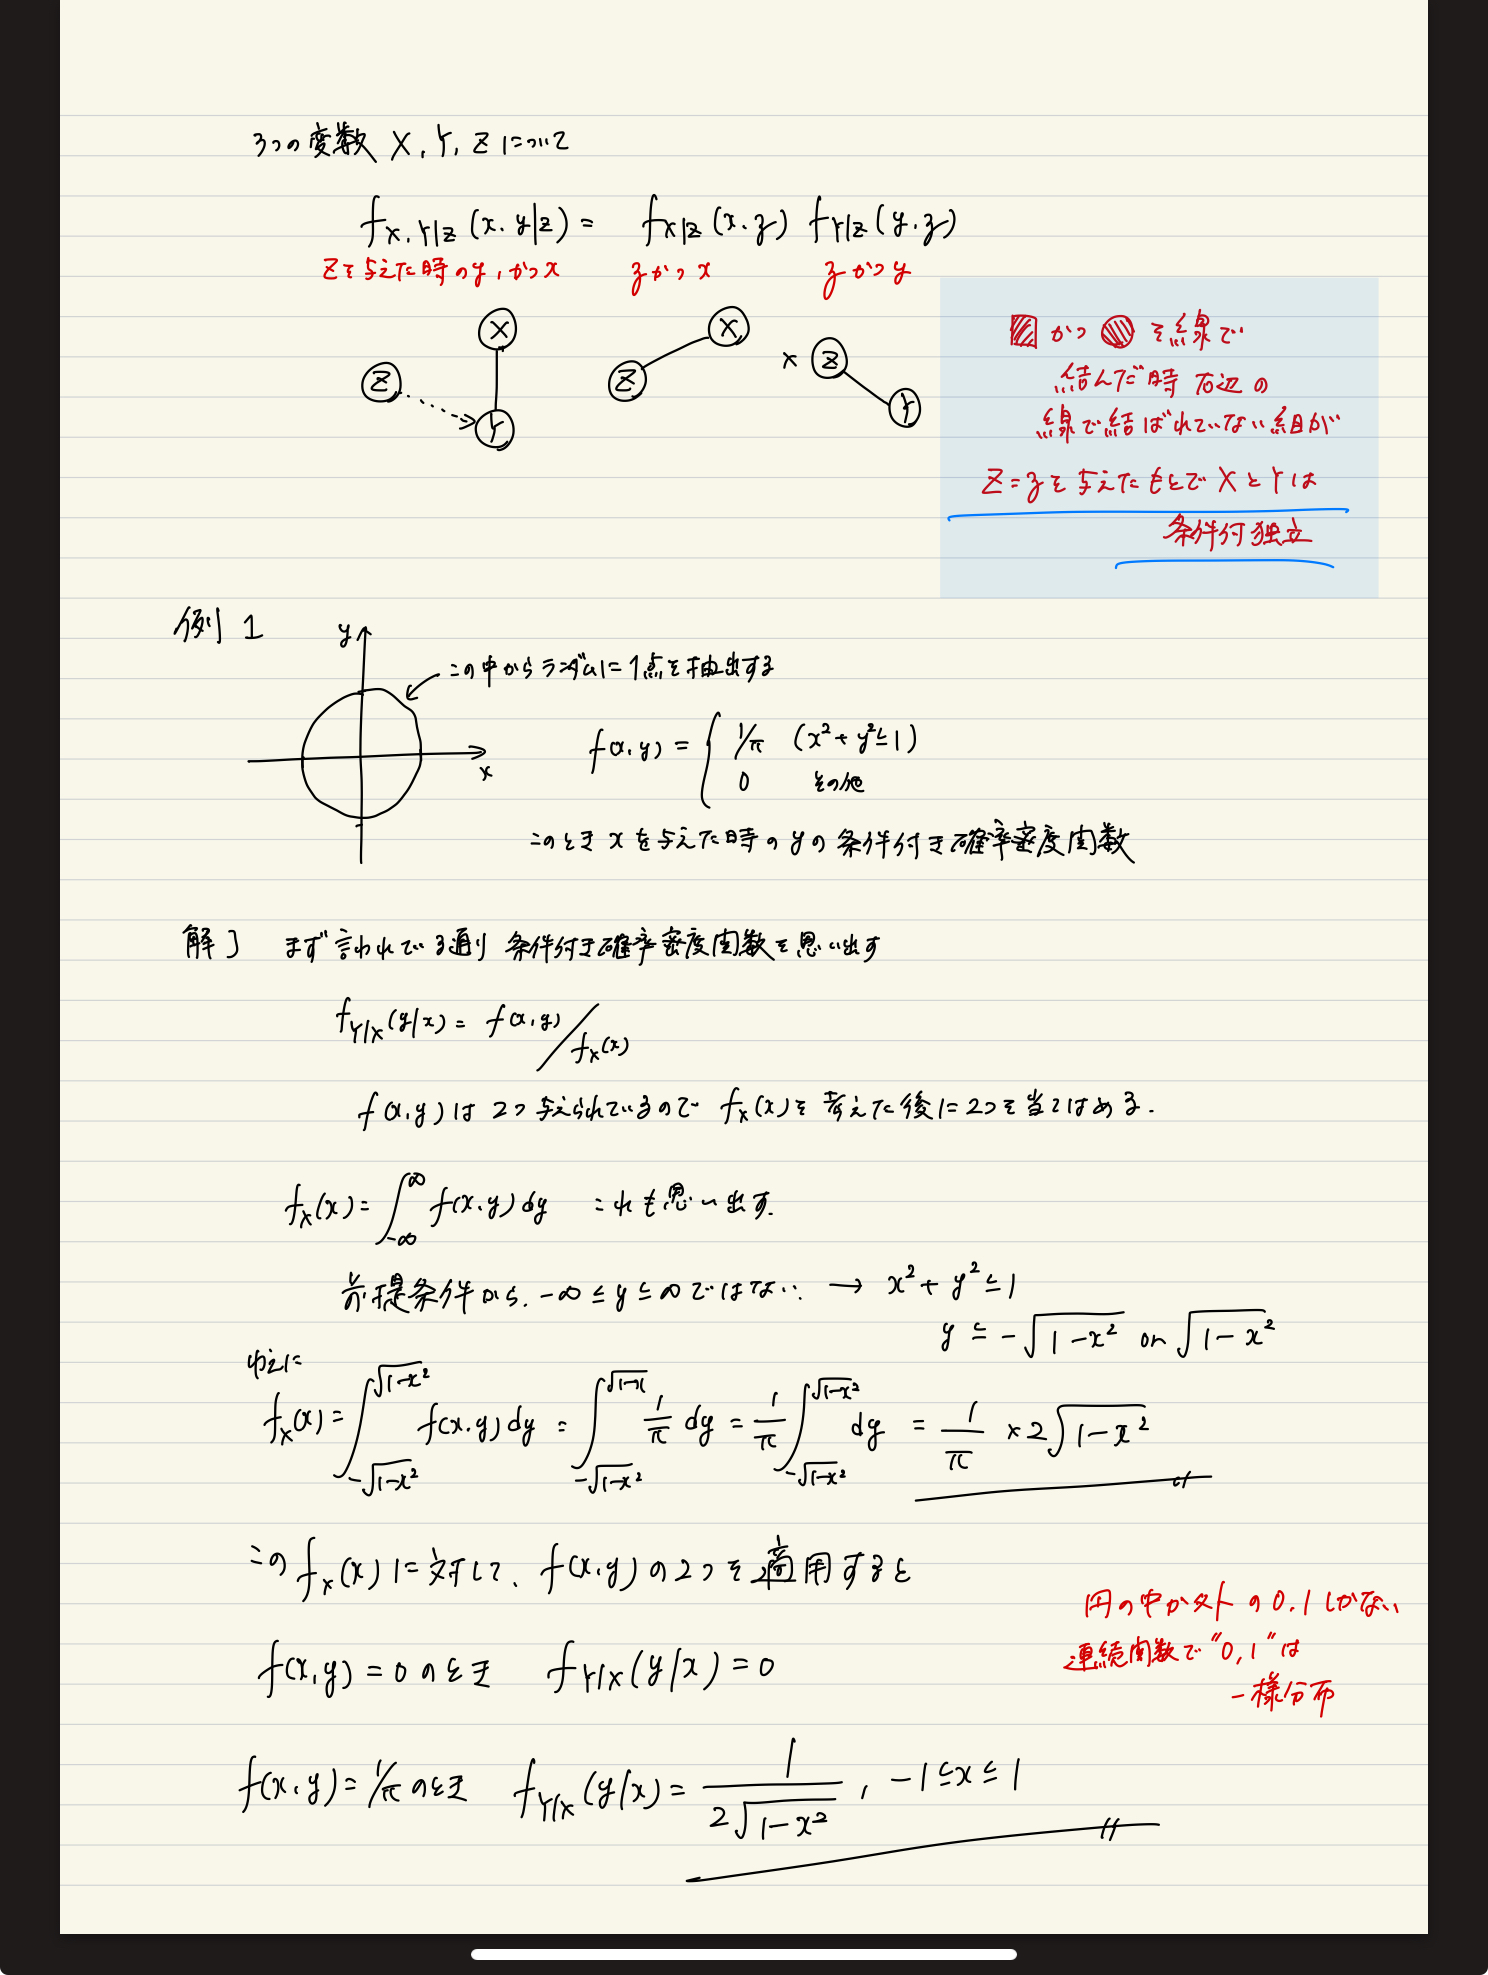 3つの変数 X, Y, Z について
f_{X,Y|Z}(x, y|z) = f_{X|Z}(x, z) f_{Y|Z}(y, z)
Zを与えた時のy,かつx zかつx zかつy
X X
Z Z × Z
Y Y
かつ を線で
結んだ時 右辺の
線で結ばれていない組が
Z=zを与えたもとでXとYは
条件付独立
例 1
y
この中からランダムに1点を抽出する
f(x,y) = { 1/π (x²+y²≦1)
0 その他
x
このとき x を与えた時の y の条件付き確率密度関数
解) まず言われている通り 条件付き確率密度関数を思い出す
f_{Y|X}(y|x) = f(x,y)/f_X(x)
f(x,y)は 2つ与えられているので f_X(x)を考えた後に2つを当てはめる.
f_X(x) = ∫_{-∞}^{∞} f(x,y)dy これも思い出す.
前提条件から, -∞≦y≦∞ ではない. → x²+y²≦1
y ≦ -√(1-x²) or √(1-x²)
ゆえに
f_X(x) = ∫_{-√(1-x²)}^{√(1-x²)} f(x,y)dy = ∫_{-√(1-x²)}^{√(1-x)} 1/π dy = 1/π ∫_{-√(1-x²)}^{√(1-x²)} dy = 1/π × 2√(1-x²)
この f_X(x) に対して、f(x,y)の2つを適用すると
円の中か外の0,1しかない
連続関数で"0,1"は
一様分布
f(x,y)=0のとき f_{Y|X}(y|x)=0
f(x,y)=1/πのとき f_{Y|X}(y|x) = 1/(2√(1-x²)), -1≦x≦1